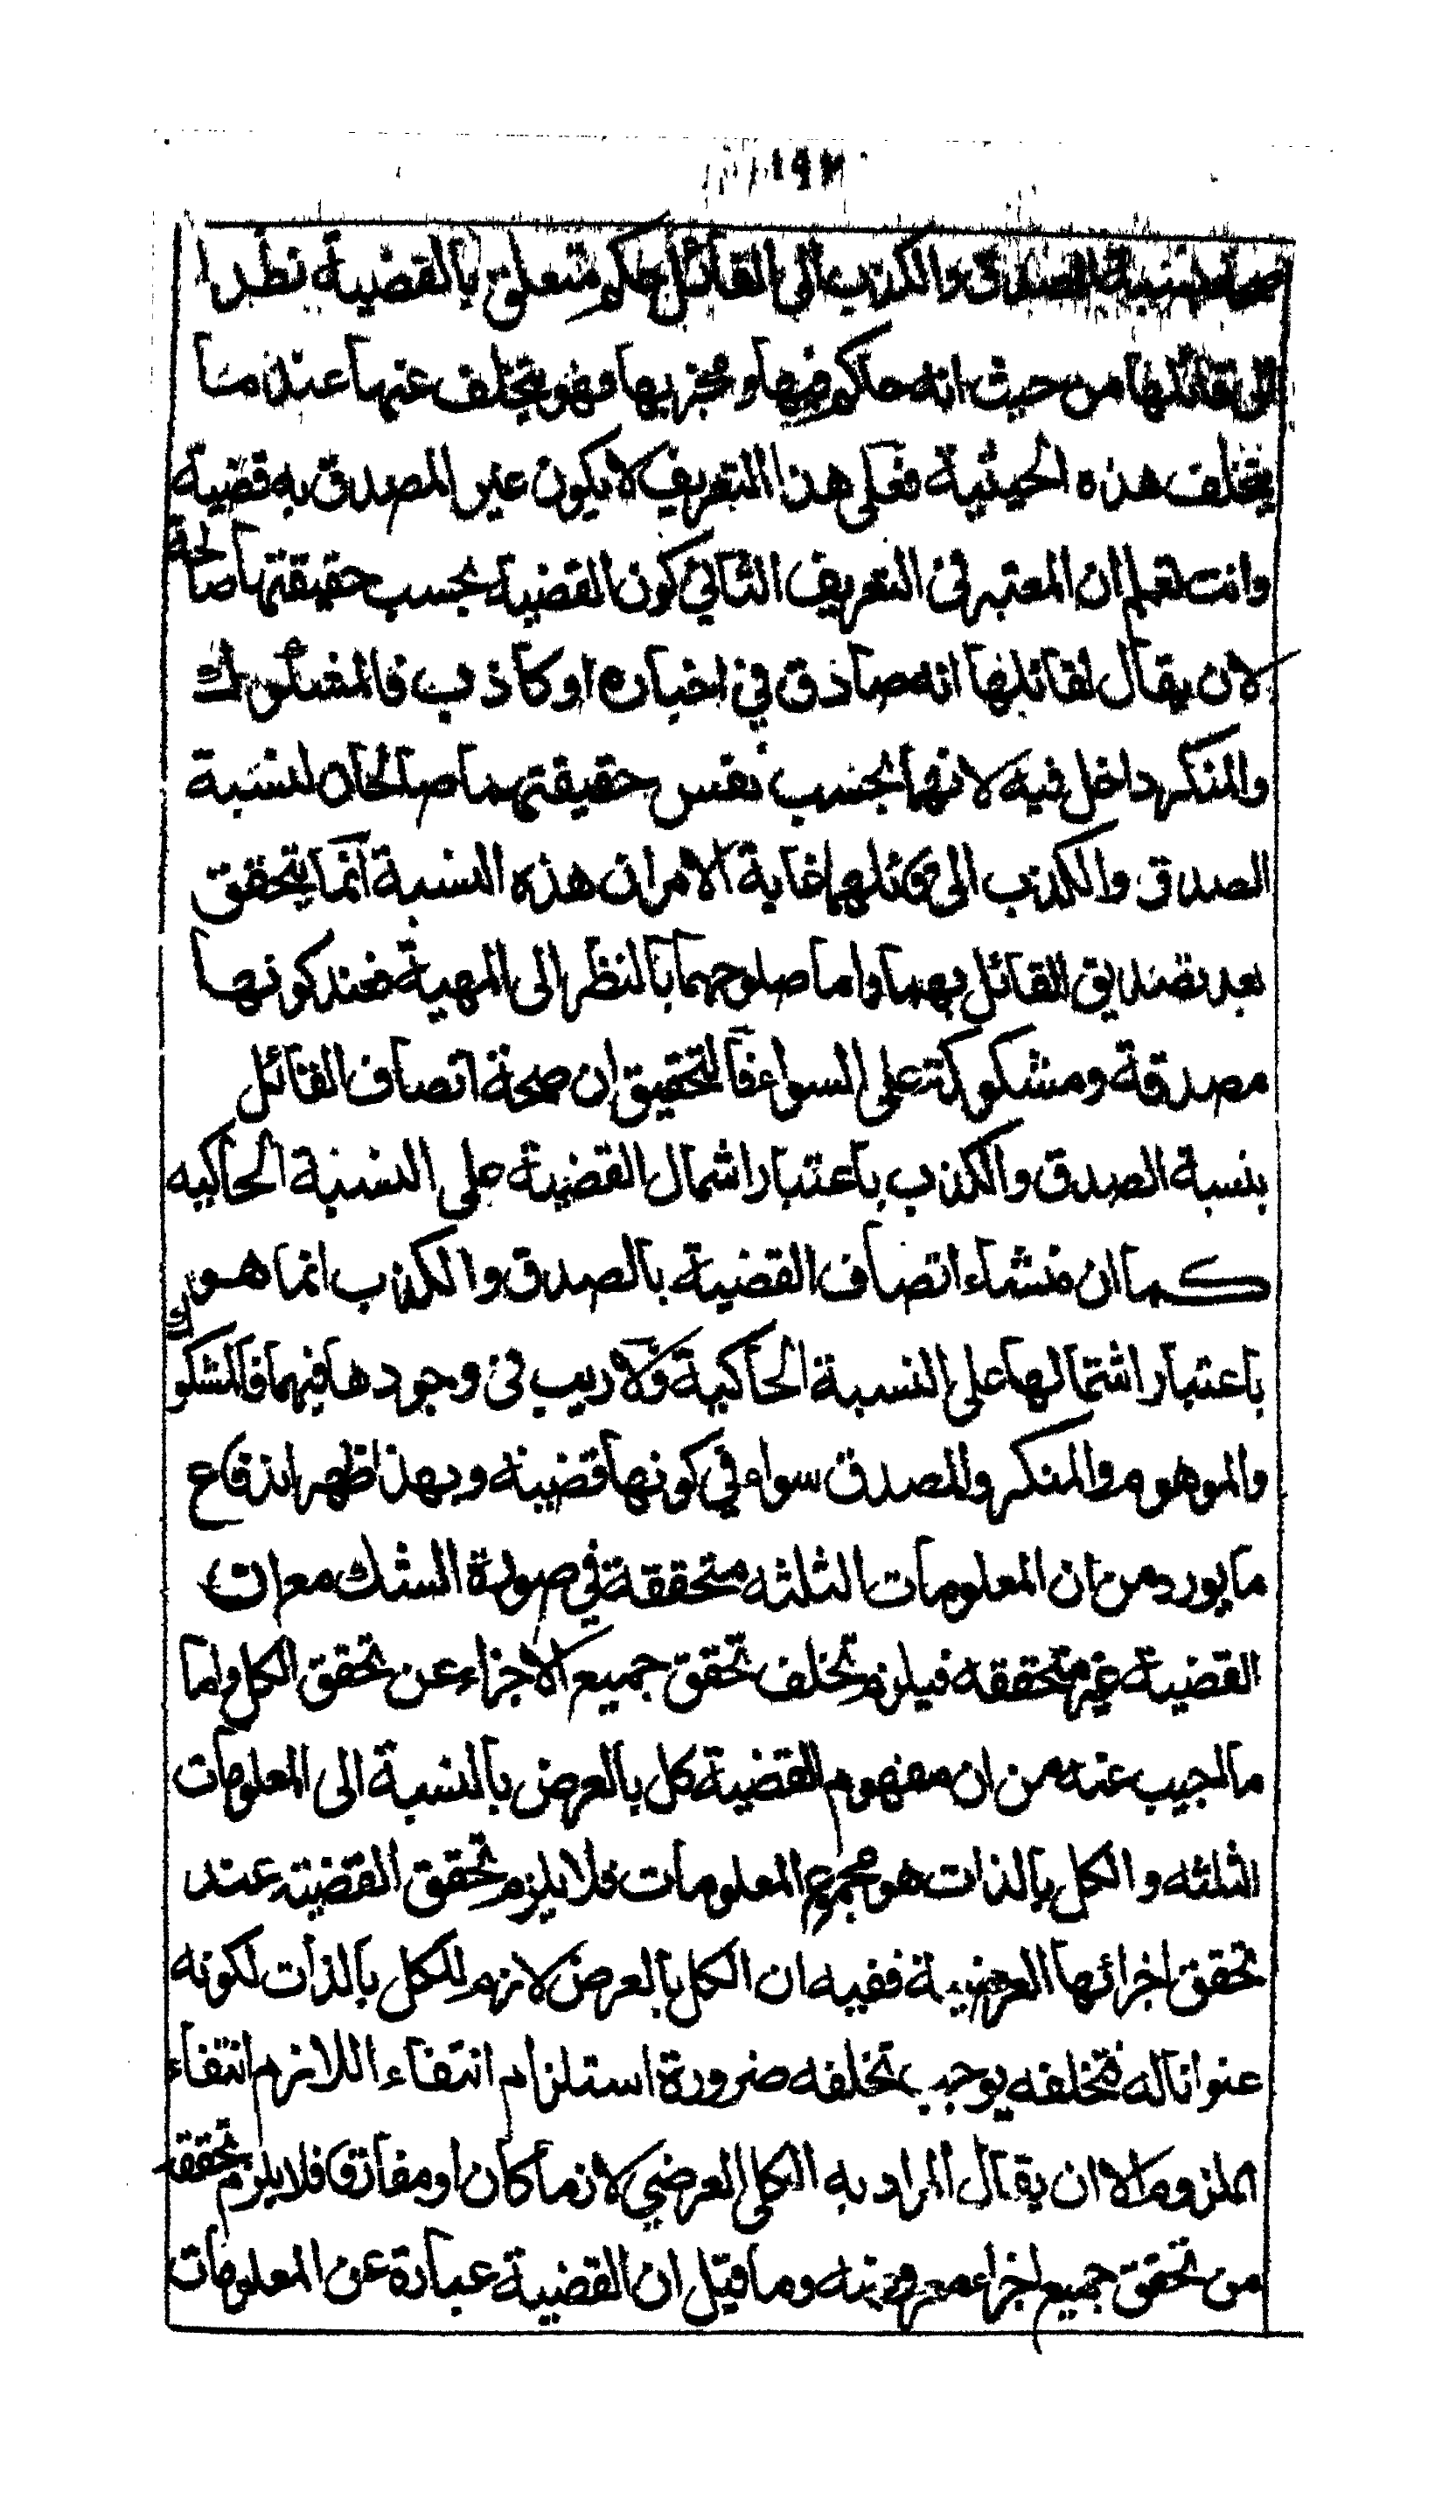 ١٩٢
صحة نسبة الصدق والكذب الى القائل حكم متعلق بالقضية نظرا
الى قائلها من حيث انه حاكم فيها ومخبر بها فهو يتخلف عنها عند ما
يتخلف هذه الحيثية فعلى هذا التعريف لا يكون غير المصدق به قضية
وانت تعلم ان المعتبر في التعريف الثاني كون القضية بحسب حقيقتها صالحة
لان يقال لقائلها انه صادق في اخباره او كاذب فالمشكوك
والمنكر داخل فيه لانهما بحسب نفس حقيقتهما صالحان لنسبة
الصدق والكذب الى قائلهما غاية الامر ان هذه النسبة انما يتحقق
بعد تصديق القائل بهما واما صلوحهما بالنظر الى المهية فعند كونها
مصدقة ومشكوكة على السواء فالتحقيق ان صحة اتصاف القائل
بنسبة الصدق والكذب باعتبار اشمال القضية على النسبة الحاكيه
كما ان منشاء اتصاف القضية بالصدق والكذب انما هو
باعتبار اشتمالها على النسبة الحاكية ولا ريب في وجودها فيهما فالمشكوك
والموهوم والمنكر والمصدق سواء في كونها قضية وبهذا ظهر اندفاع
ما يورد من ان المعلومات الثلثه متحققة في صورة الشك مع ان
القضية غير متحققه فيلزم تخلف تحقق جميع الاجزاء عن تحقق الكل واما
ما اجيب عنه من ان مفهوم القضية كل بالعرض بالنسبة الى المعلومات
الثلثه والكل بالذات هو مجموع المعلومات فلا يلزم تحقق القضية عند
تحقق اجزائها العرضية ففيه ان الكل بالعرض لازم للكل بالذات لكونه
عنوانا له فتخلفه يوجب تخلفه ضرورة استلزام انتفاء اللازم انتفاء
الملزوم الا ان يقال المراد به الكلى العرضي لازما كان او مفارقا فلا يلزم تحققه
من تحقق جميع اجزاء معروضه وما قيل ان القضية عبارة عن المعلومات